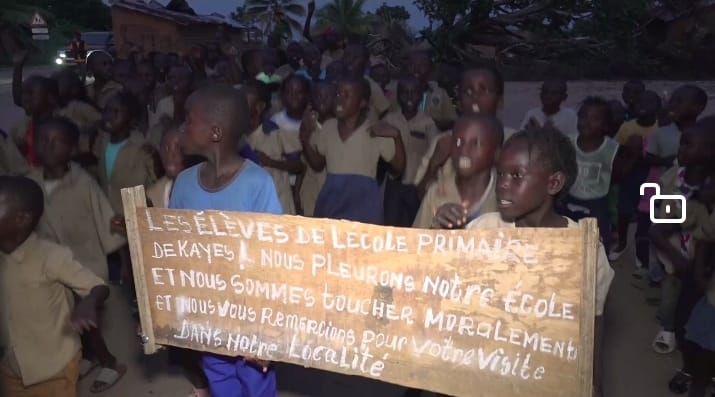 LES ÉLÈVES DE L'ÉCOLE PRIMAIRE
DE KAYES! NOUS PLEURONS NOTRE ÉCOLE
ET NOUS SOMMES TOUCHER MORALEMENT
ET NOUS VOUS REMERCIONS POUR VOTRE VISITE
DANS NOTRE LOCALITÉ